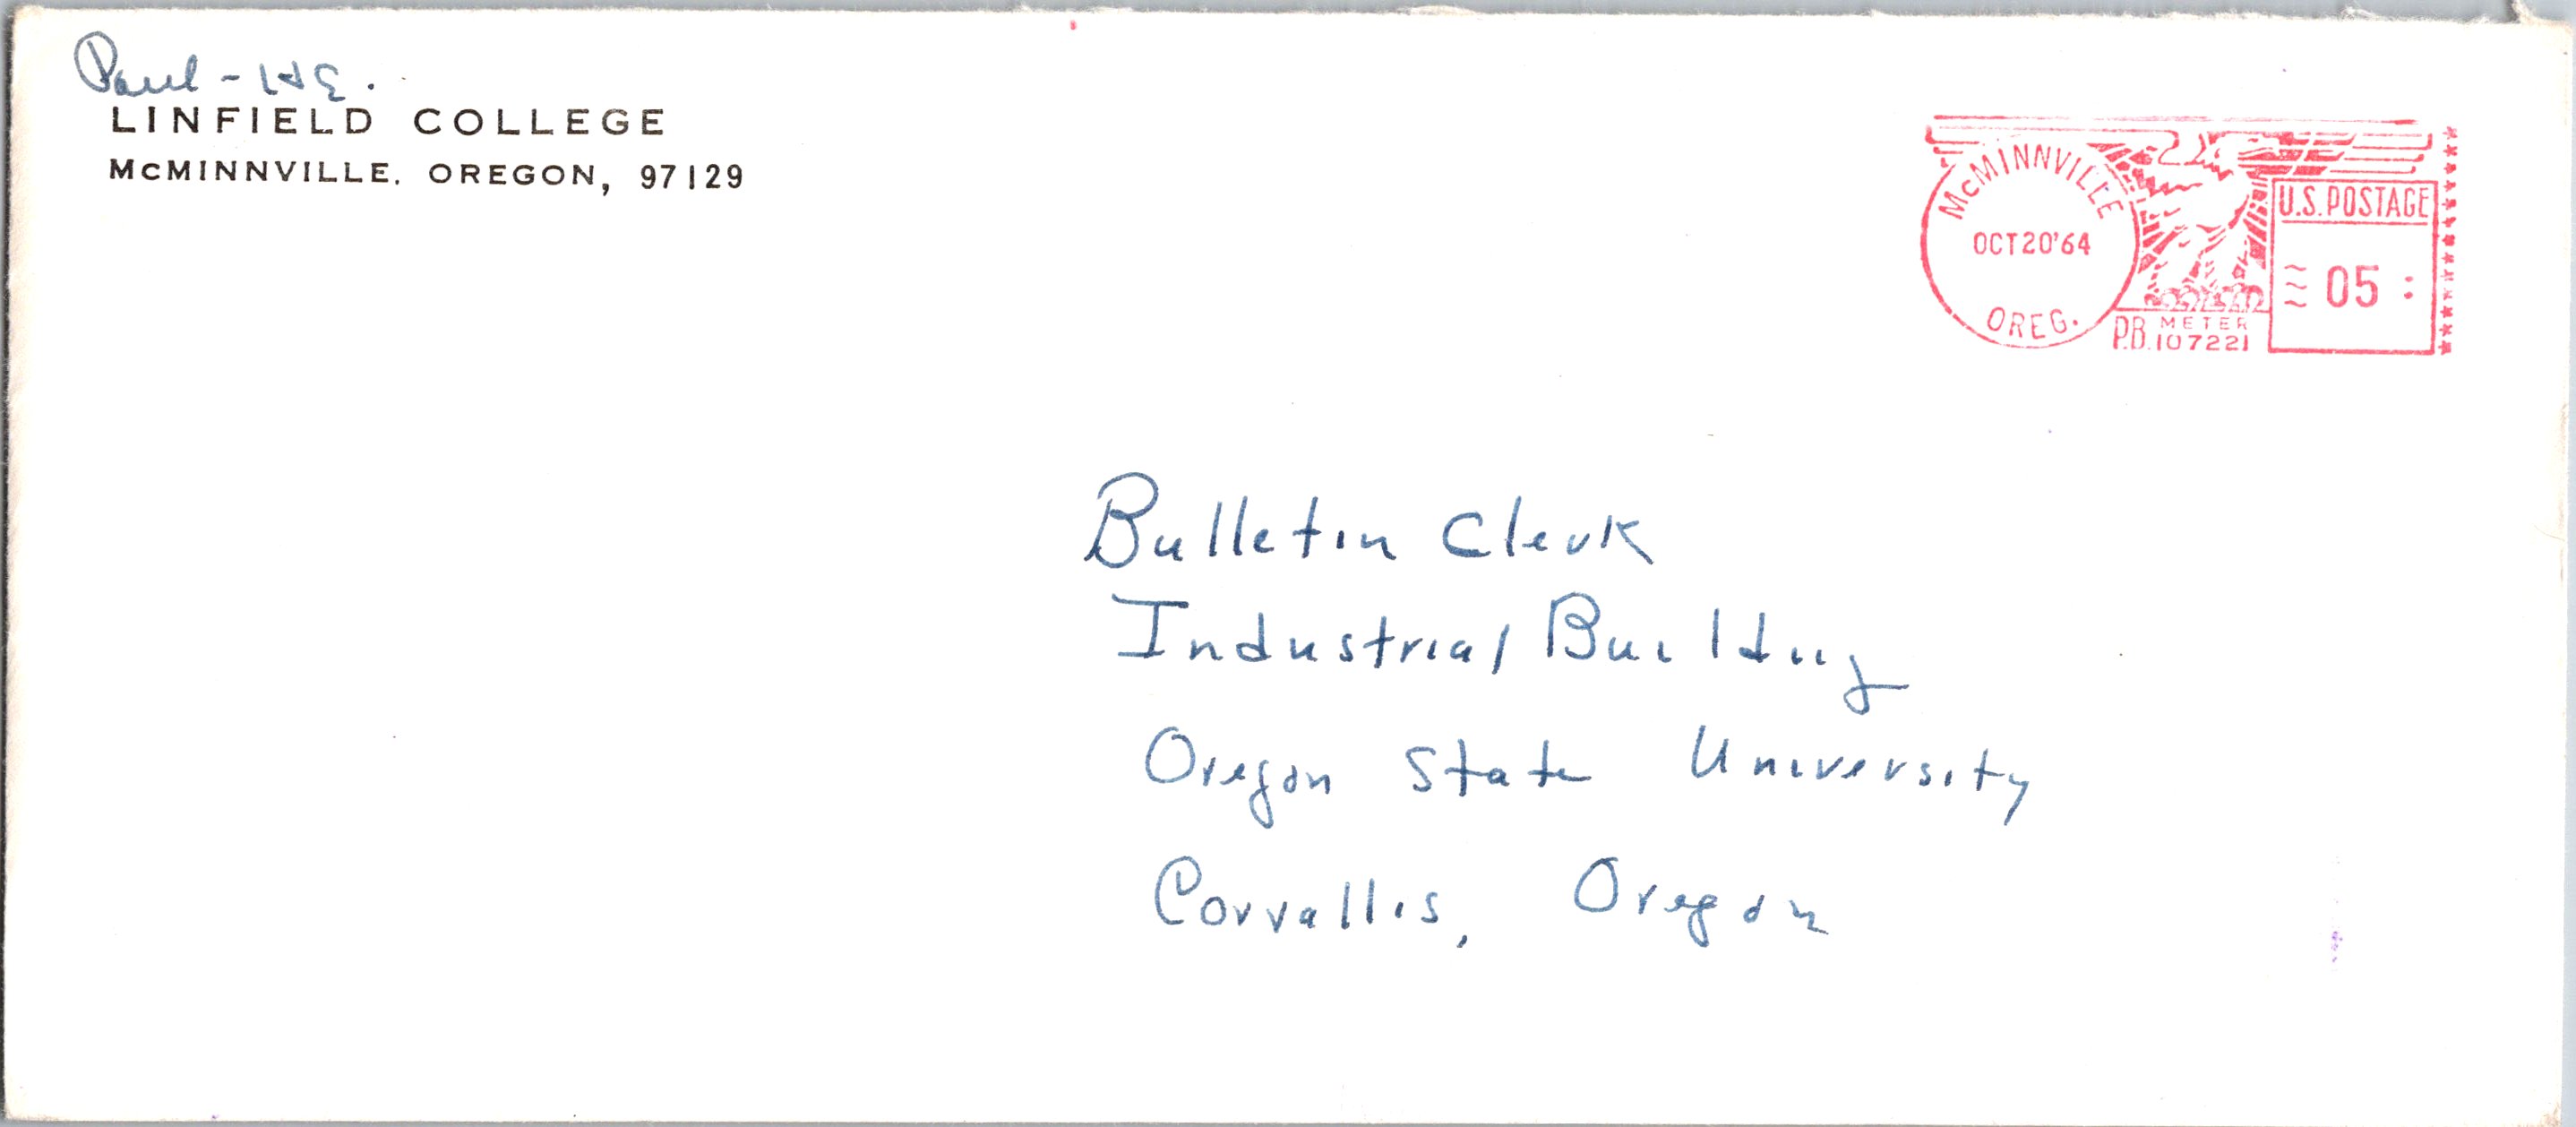 Paul - H.E.
LINFIELD COLLEGE
McMINNVILLE, OREGON, 97129
McMINNVILLE
OCT 20'64
OREG.
P.B. METER
107221
U.S. POSTAGE
05
Bulletin Clerk
Industrial Building
Oregon State University
Corvallis, Oregon